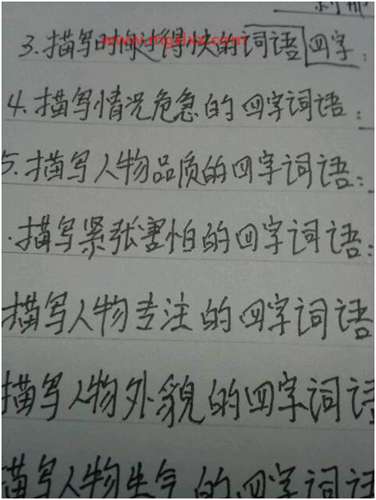 3.描写时间过得快的词语四字
4.描写情况危急的四字词语:
5.描写人物品质的四字词语:
.描写紧张害怕的四字词语:
描写人物专注的四字词语
描写人物外貌的四字词语
描写人物生气的四字词